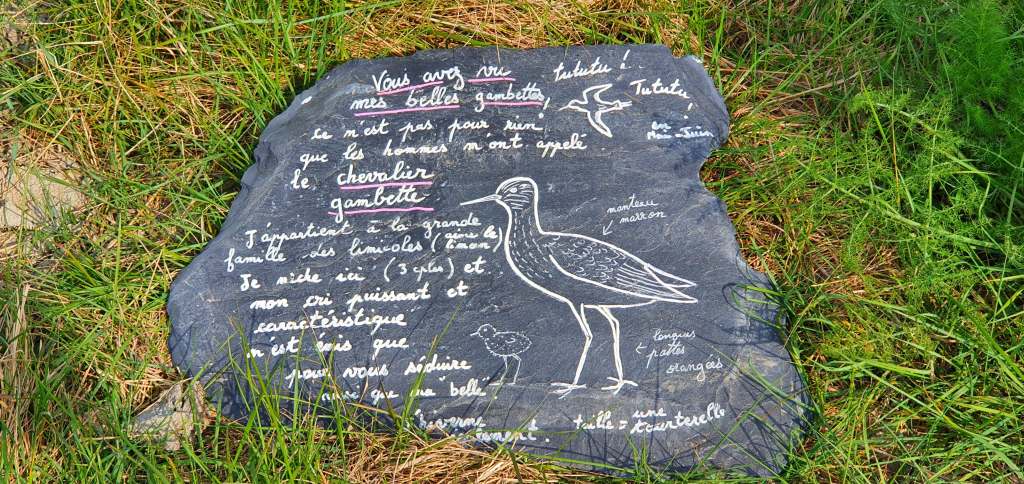 Vous avez vu
mes belles gambettes,
tututu !..
Tututu !
en
Mai - Juin
ce n'est pas pour rien
que les hommes m'ont appelé
le chevalier
gambette
J'appartient à la grande
famille des limicoles (aime le limon)
Je niche ici (3 cples) et
mon cri puissant et
caractéristique
n'est émis que
pour vous séduire
ainsi que ma belle
manteau
marron
longues
pattes
orangées
taille = une
tourterelle